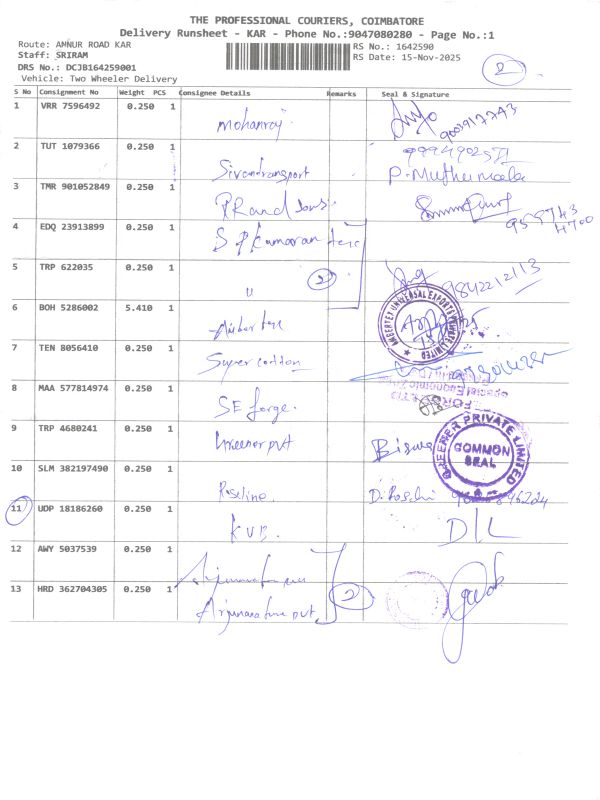 THE PROFESSIONAL COURIERS, COIMBATORE
Delivery Runsheet - KAR - Phone No.:9047080280 - Page No.:1
Route: AMNUR ROAD KAR
RS No.: 1642590
Staff: SRIRAM
RS Date: 15-Nov-2025
DRS No.: DCJB164259001
Vehicle: Two Wheeler Delivery
2
S No Consignment No Weight PCS Consignee Details Remarks Seal & Signature
1 VRR 7596492 0.250 1 mohanraj
2 TUT 1079366 0.250 1 Sivamtransport
3 TMR 901052849 0.250 1 PR and Sons
4 EDQ 23913899 0.250 1 S P Kumaran tex
5 TRP 622035 0.250 1 u 2 9842212113
6 BOH 5286002 5.410 1 AMBERTEX UNIVERSAL EXPORTS PRIVATE LIMITED
7 TEN 8056410 0.250 1 Super cotton
8 MAA 577814974 0.250 1 SE forge.
9 TRP 4680241 0.250 1 Greener pvt GREENER PRIVATE LIMITED COMMON SEAL
10 SLM 382197490 0.250 1 Roseline
11 UDP 18186260 0.250 1 KVB. D/L
12 AWY 5037539 0.250 1
13 HRD 362704305 0.250 1 2